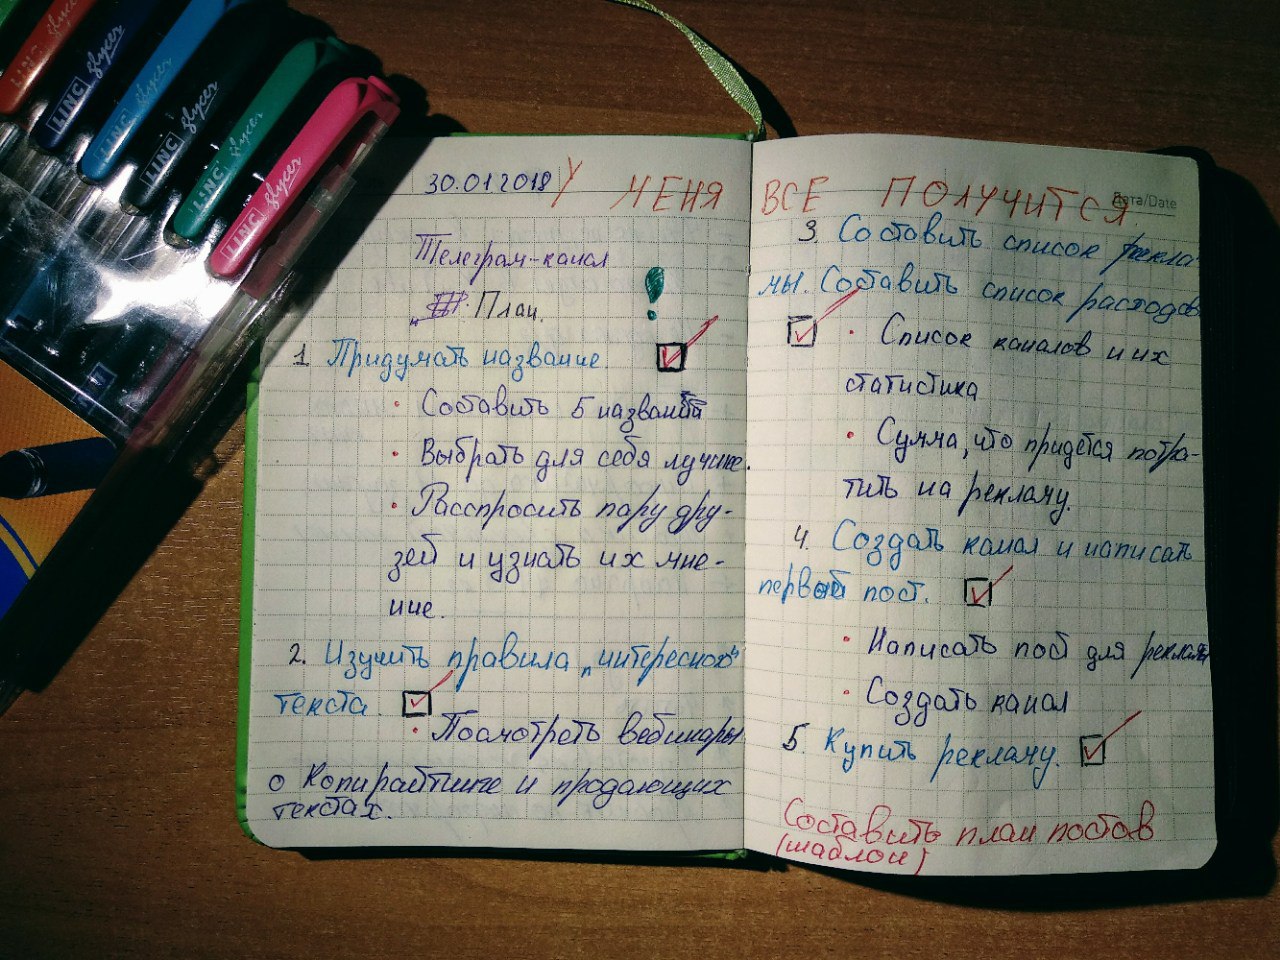 LINC glycer
LINC glycer
LINC glycer
LINC glycer
LINC glycer
LINC glycer
30.01.2018 У МЕНЯ ВСЕ ПОЛУЧИТСЯ
Дата/Date
Телеграм-канал
План.
1. Придумать название.
• Составить 5 названий
• Выбрать для себя лучшие.
• Расспросить пару дру-
зей и узнать их мне-
ние.
2. Изучить правила „интересного"
текста.
• Посмотреть вебинары
о Копирайтинге и продающих
текстах.
3. Составить список рекла-
мы. Составить список расходов
• Список каналов и их
статистика
• Сумма, что придётся потра-
тить на рекламу.
4. Создать канал и написать
первый пост.
• Написать пост для рекламы
• Создать канал
5. Купить рекламу.
Составить план постов
(шаблон)